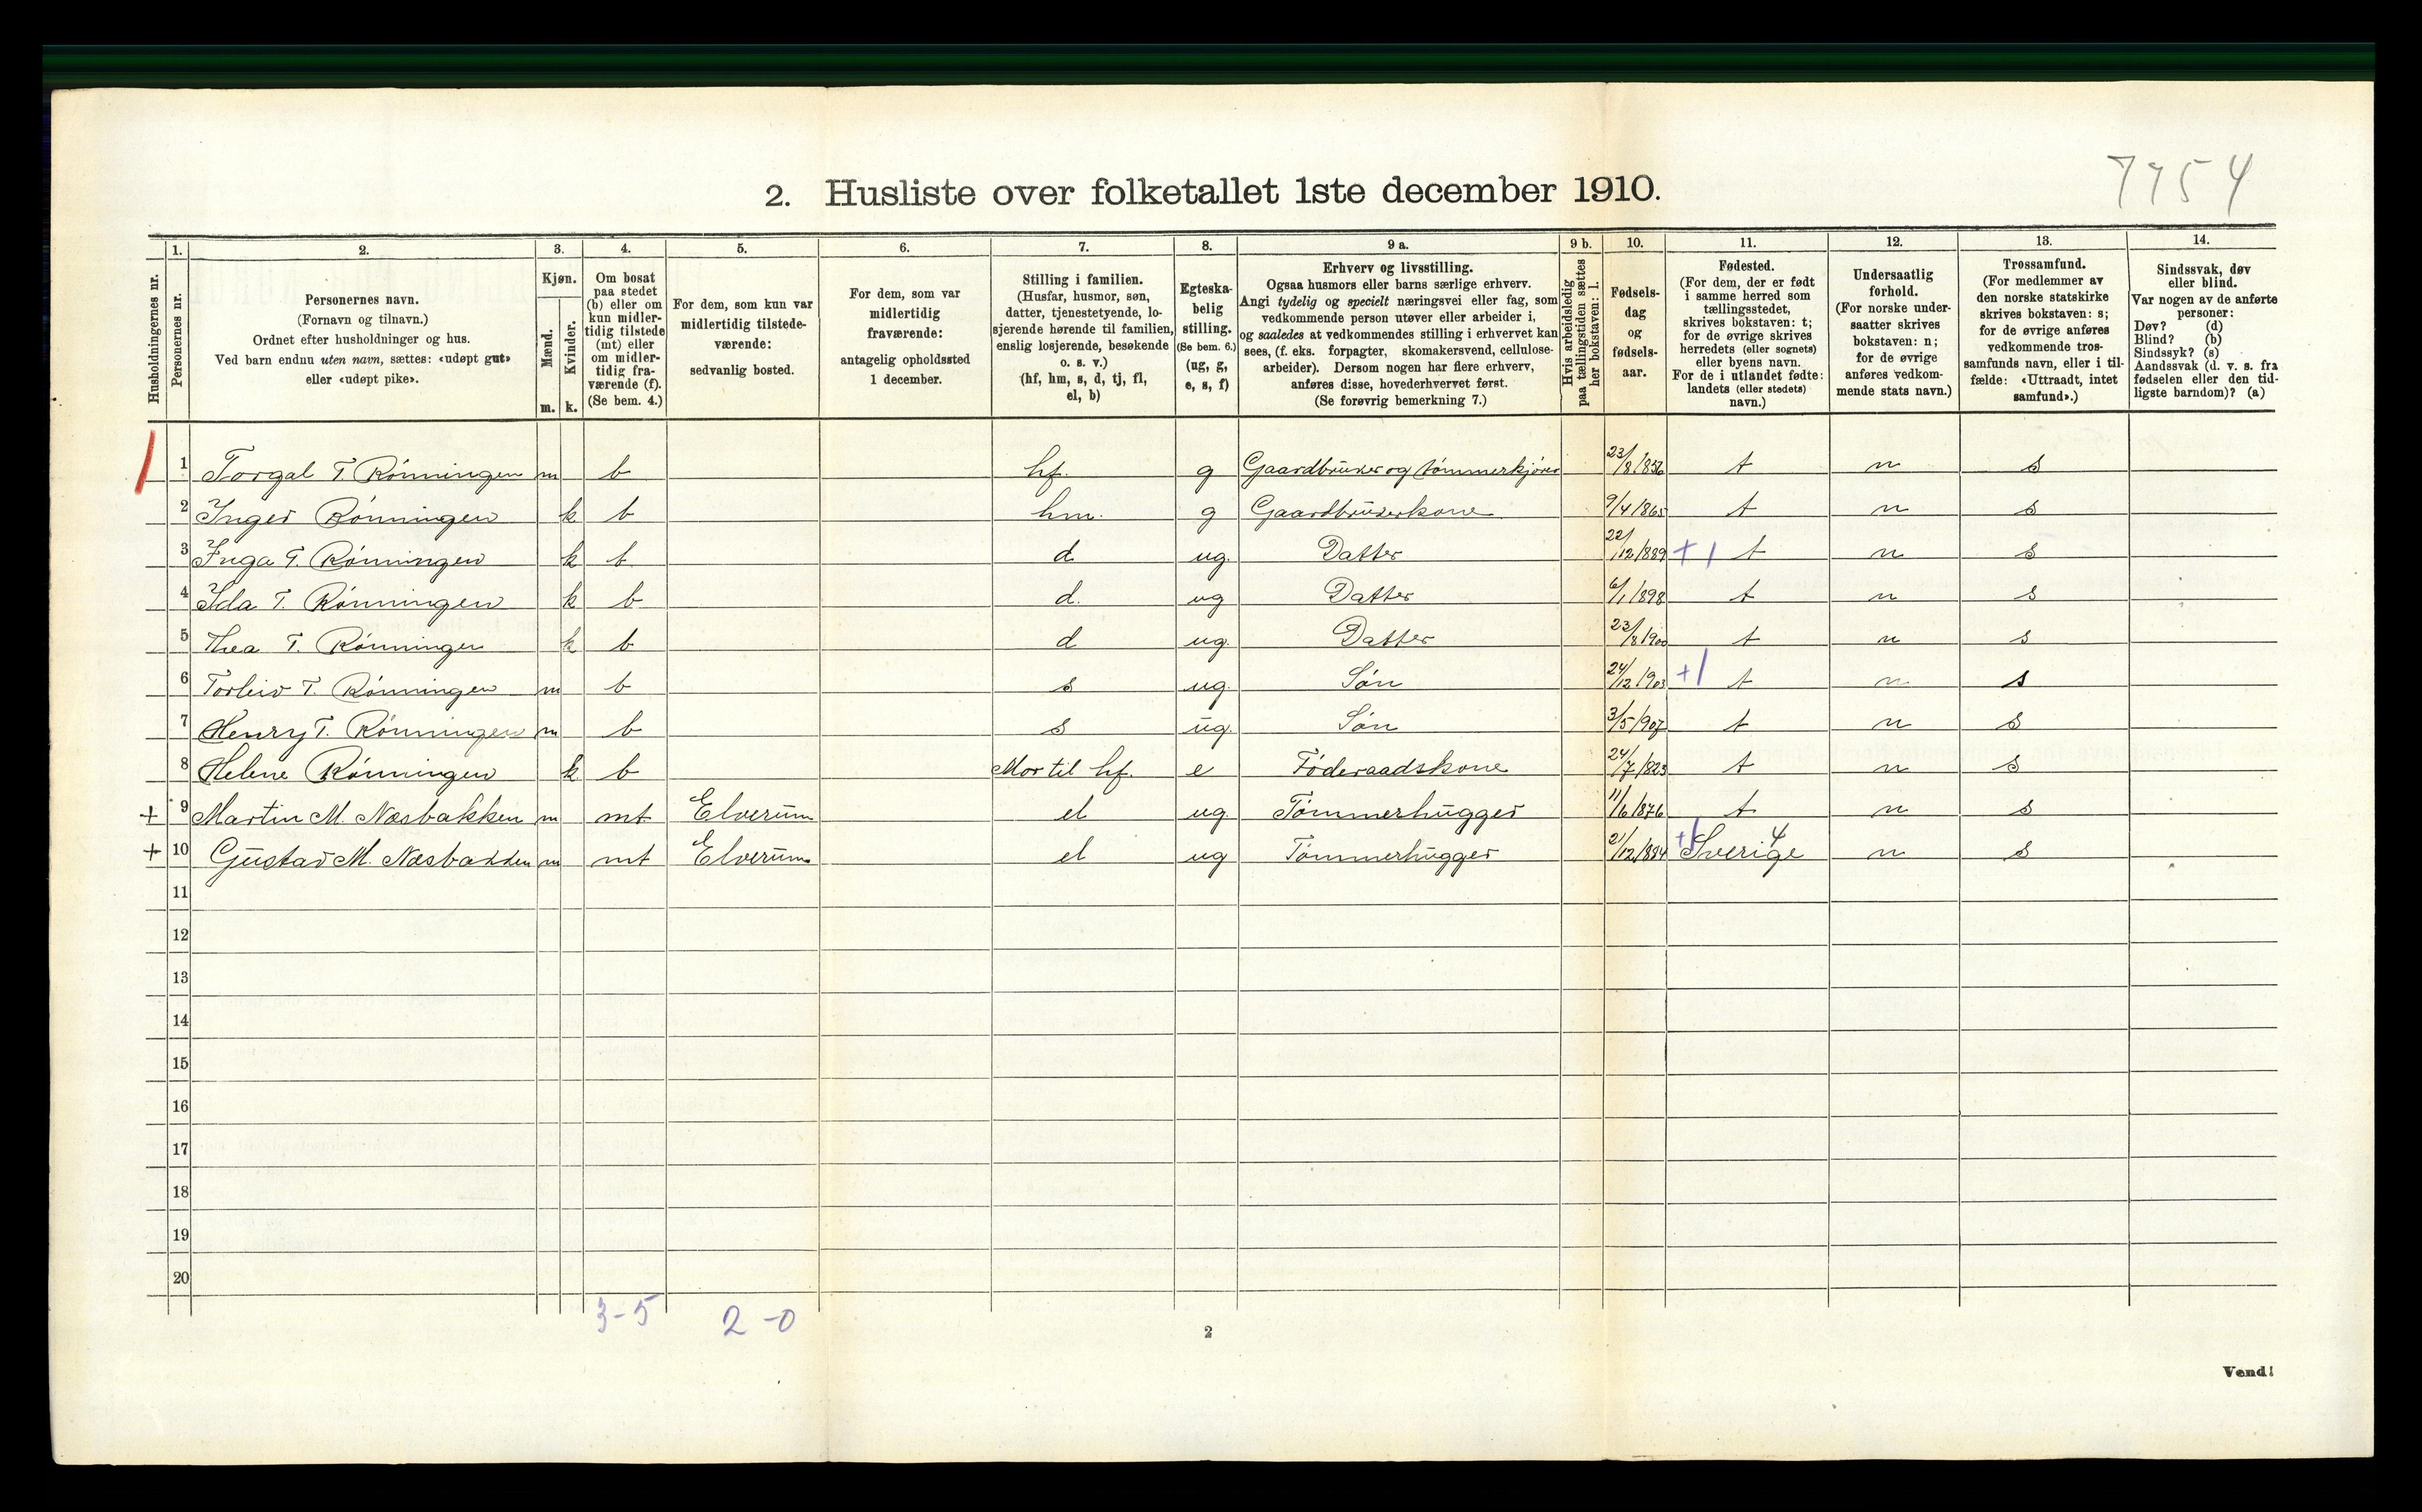 7754
2. Husliste over folketallet 1ste december 1910.
Husholdningernes nr.
1. Personernes nr.
2. Personernes navn.
(Fornavn og tilnavn.)
Ordnet efter husholdninger og hus.
Ved barn endnu uten navn, sættes: «udøpt gut»
eller «udøpt pike».
3. Kjøn.
Mænd. m.
Kvinder. k.
4. Om bosat
paa stedet
(b) eller om
kun midler-
tidig tilstede
(mt) eller
om midler-
tidig fra-
værende (f).
(Se bem. 4.)
5. For dem, som kun var
midlertidig tilstede-
værende:
sedvanlig bosted.
6. For dem, som var
midlertidig
fraværende:
antagelig opholdssted
1 december.
7. Stilling i familien.
(Husfar, husmor, søn,
datter, tjenestetyende, lo-
sjerende hørende til familien,
enslig losjerende, besøkende
o. s. v.)
(hf, hm, s, d, tj, fl,
el, b)
8. Egteska-
belig
stilling.
(Se bem. 6.)
(ug, g,
e, s, f)
9 a. Erhverv og livsstilling.
Ogsaa husmors eller barns særlige erhverv.
Angi tydelig og specielt næringsvei eller fag, som
vedkommende person utøver eller arbeider i,
og saaledes at vedkommendes stilling i erhvervet kan
sees, (f. eks. forpagter, skomakersvend, cellulose-
arbeider). Dersom nogen har flere erhverv,
anføres disse, hovederhvervet først.
(Se forøvrig bemerkning 7.)
9 b. Hvis arbeidsledig
paa tællingstiden sættes
her bokstaven: l.
10. Fødsels-
dag
og
fødsels-
aar.
11. Fødested.
(For dem, der er født
i samme herred som
tællingsstedet,
skrives bokstaven: t;
for de øvrige skrives
herredets (eller sognets)
eller byens navn.
For de i utlandet fødte:
landets (eller stedets)
navn.)
12. Undersaatlig
forhold.
(For norske under-
saatter skrives
bokstaven: n;
for de øvrige
anføres vedkom-
mende stats navn.)
13. Trossamfund.
(For medlemmer av
den norske statskirke
skrives bokstaven: s;
for de øvrige anføres
vedkommende tros-
samfunds navn, eller i til-
fælde: «Uttraadt, intet
samfund».)
14. Sindssvak, døv
eller blind.
Var nogen av de anførte
personer:
Døv? (d)
Blind? (b)
Sindssyk? (s)
Aandssvak (d. v. s. fra
fødselen eller den tid-
ligste barndom)? (a)
1 Torgal T. Rönningen m b hf. g Gaardbruker og tömmerkjörer 23/8 1856 t n s
2 Inger Rönningen k b hm. g Gaardbrukerkone 9/4 1865 t n s
3 Inga T. Rönningen k b d ug. Datter 22/12 1889 +1 t n s
4 Ida T. Rönningen k b d. ug Datter 6/1 1898 t n s
5 Thea T. Rönningen k b d ug. Datter 23/8 1900 t n s
6 Torleiv T. Rönningen m b s ug. Sön 24/12 1903 +1 t n s
7 Henry T. Rönningen m b s ug. Sön 3/5 1907 t n s
8 Helene Rönningen k b Mor til hf. e Föderaadskone 24/7 1823 t n s
+ 9 Martin M. Næsbakken m mt Elverum el ug. Tömmerhugger 11/6 1876 t n s
+ 10 Gustav M. Næsbakken m mt Elverum el ug Tömmerhugger 21/12 1884 +1 Sverige 4 n s
11
12
13
14
15
16
17
18
19
20
3-5 2-0
2
Vend!